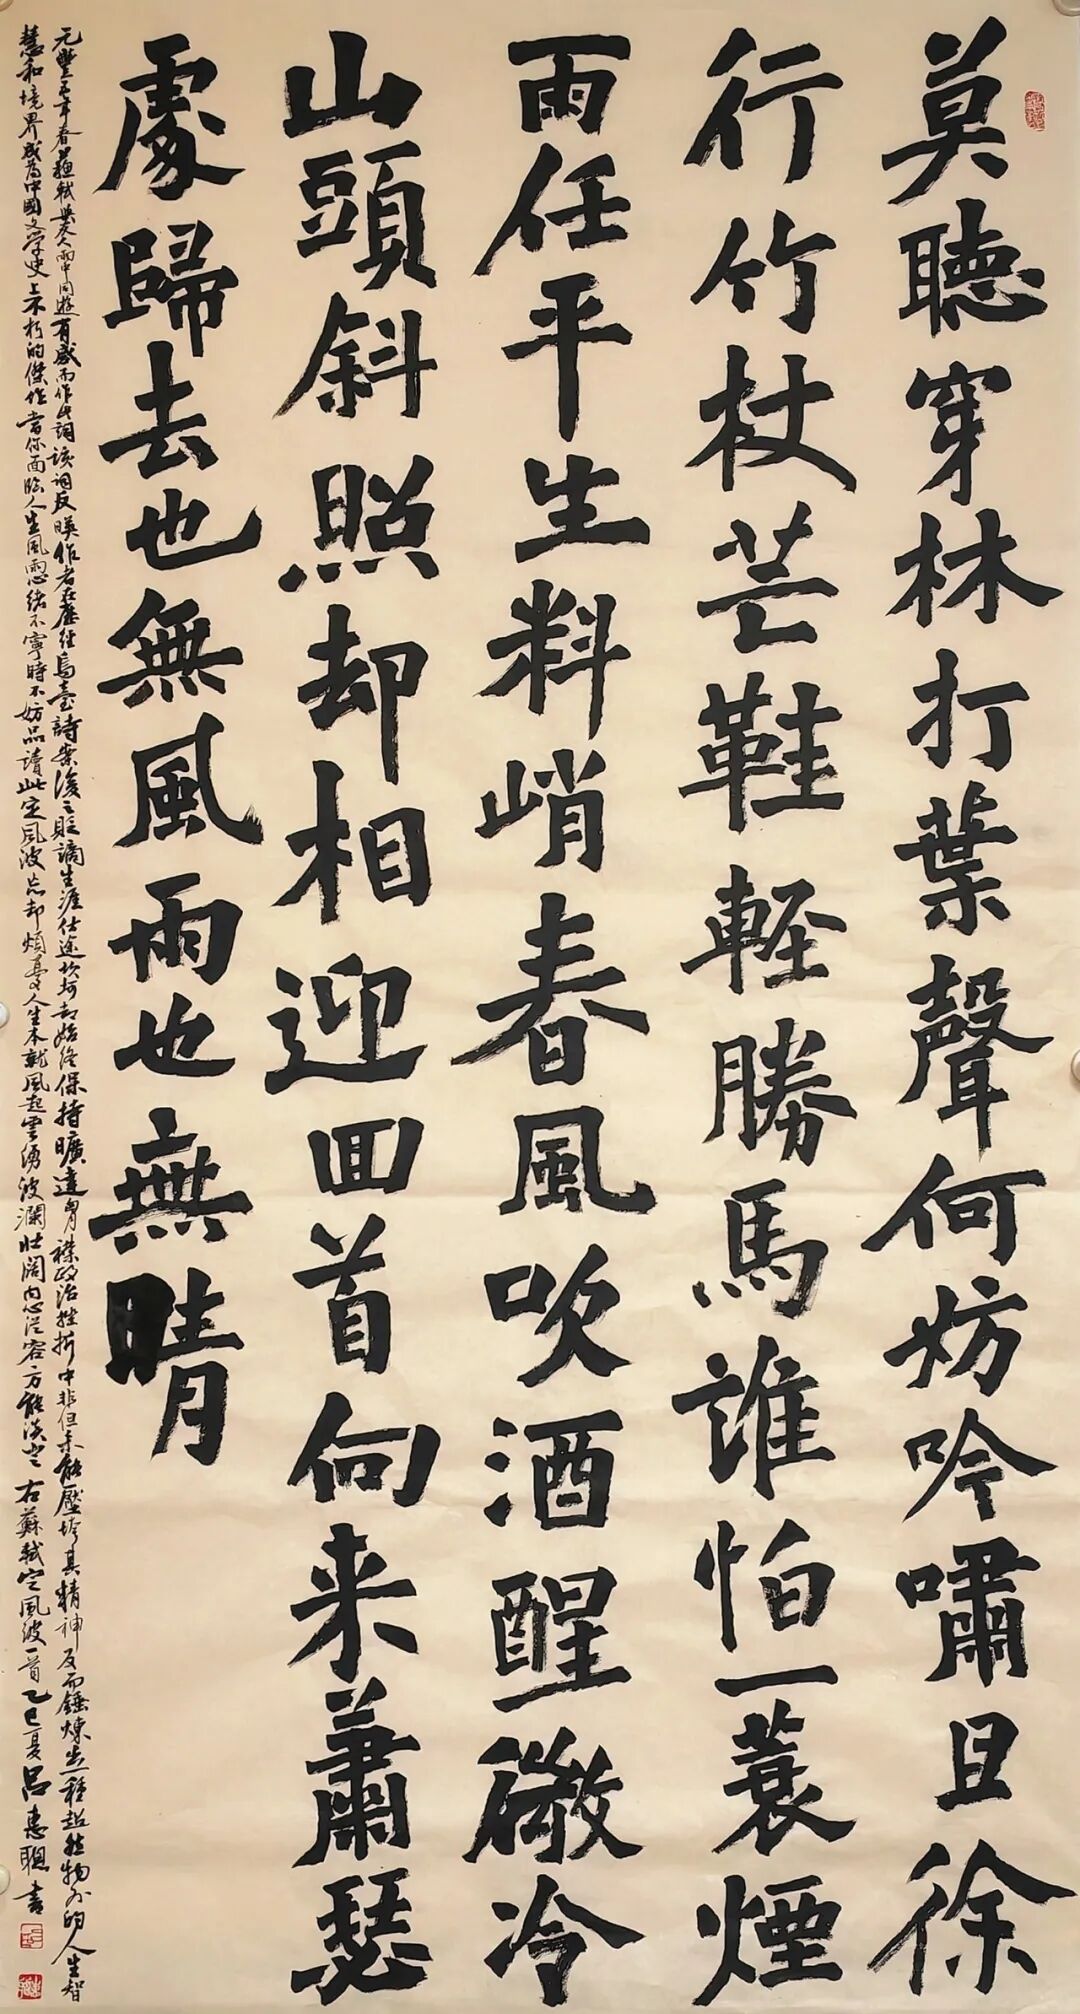 莫聽穿林打葉聲何妨吟嘯且徐
行竹杖芒鞋輕勝馬誰怕一蓑煙
雨任平生料峭春風吹酒醒微冷
山頭斜照却相迎回首向来蕭瑟
處歸去也無風雨也無晴
元豐五年春蘇軾與友人雨中同遊有感而作此詞該詞反映作者在歷經烏臺詩案後之貶謫生涯仕途坎坷却始終保持曠達胸襟政治挫折中非但未能壓垮其精神反而錘煉出一種超然物外的人生智
慧和境界成為中國文学史上不朽的傑作當你面臨人生風雨思緒不寧時不妨品讀此定風波忘却煩憂人生本就風起雲湧波瀾壯闊內心從容方能淡定右蘇軾定風波一首乙巳夏呂惠聰書